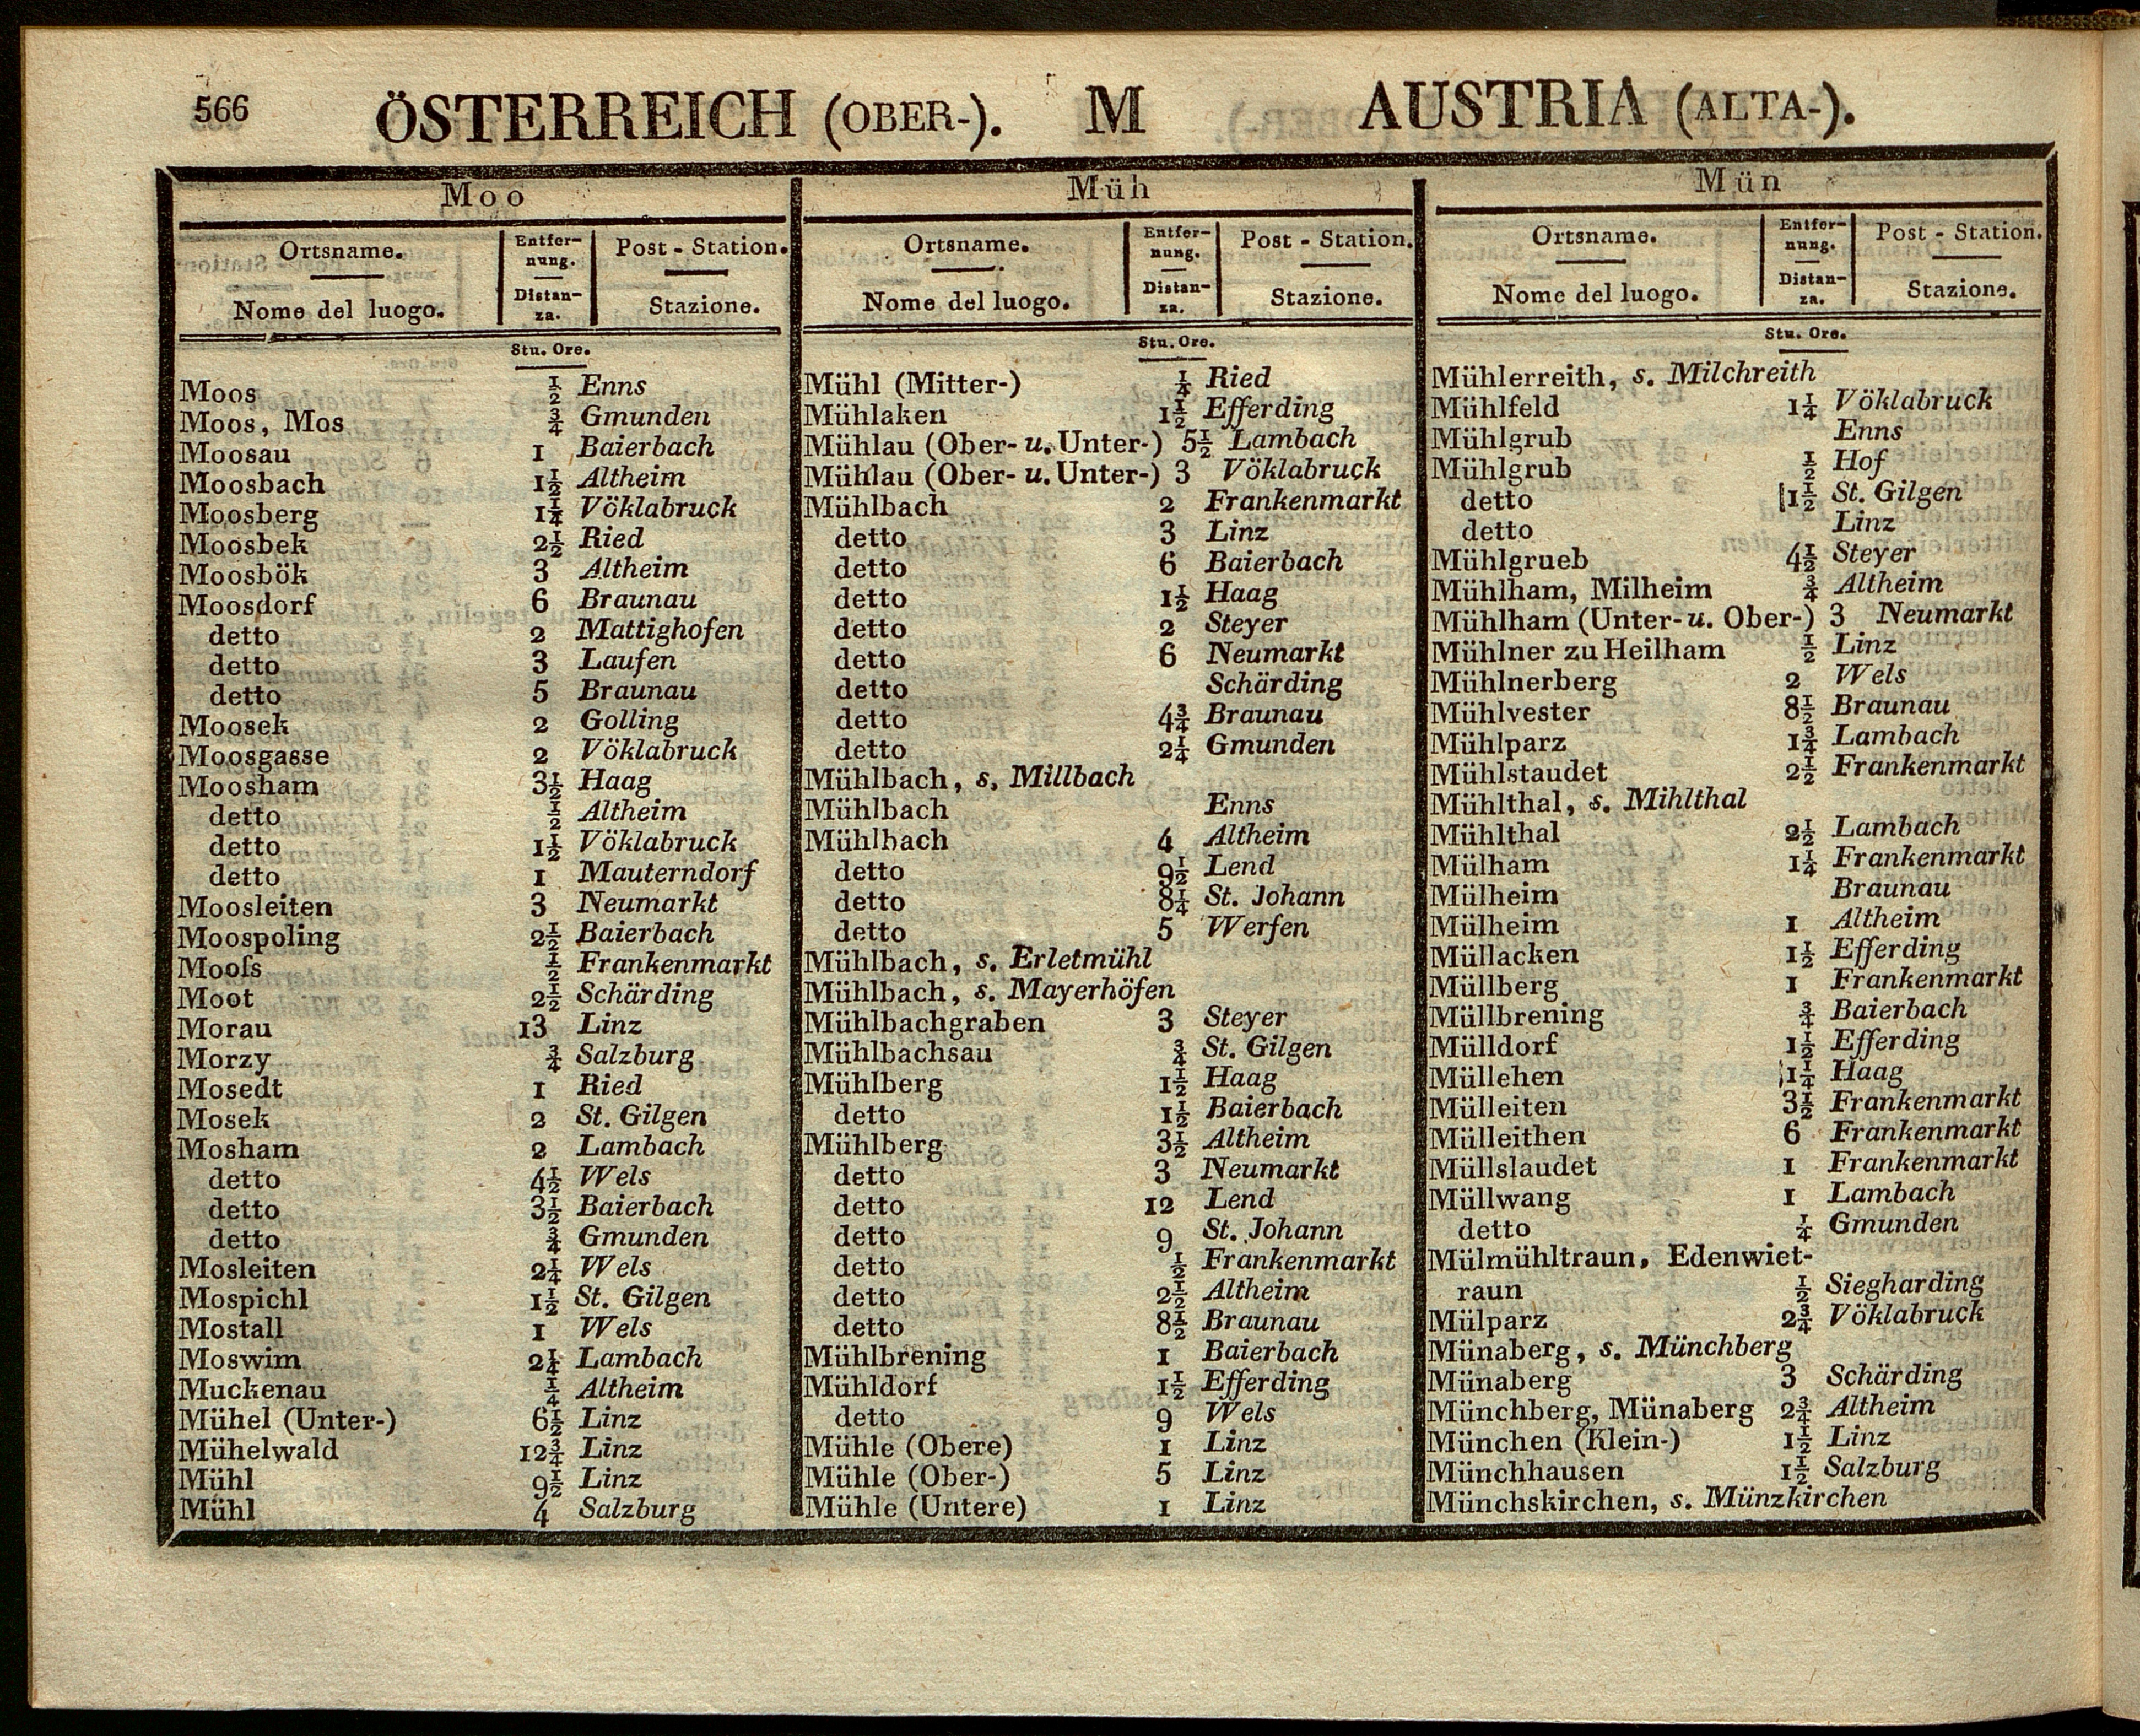 566 ÖSTERREICH (OBER-). M AUSTRIA (ALTA-).
Moo
Ortsname. Entfer- Post-Station.
nung.
Nome del luogo. Distan- Stazione.
za.
Stu. Ore.
Moos ½ Enns
Moos, Mos ¾ Gmunden
Moosau 1 Baierbach
Moosbach 1½ Altheim
Moosberg 1¼ Vöklabruck
Moosbek 2½ Ried
Moosbök 3 Altheim
Moosdorf 6 Braunau
detto 2 Mattighofen
detto 3 Laufen
detto 5 Braunau
Moosek 2 Golling
Moosgasse 2 Vöklabruck
Moosham 3½ Haag
detto ½ Altheim
detto 1½ Vöklabruck
detto 1 Mauterndorf
Moosleiten 3 Neumarkt
Moospoling 2½ Baierbach
Mooſs ½ Frankenmarkt
Moot 2½ Schärding
Morau 13 Linz
Morzy ¾ Salzburg
Mosedt 1 Ried
Mosek 2 St. Gilgen
Mosham 2 Lambach
detto 4½ Wels
detto 3½ Baierbach
detto ¾ Gmunden
Mosleiten 2¼ Wels
Mospichl 1½ St. Gilgen
Mostall 1 Wels
Moswim 2¼ Lambach
Muckenau ¼ Altheim
Mühel (Unter-) 6½ Linz
Mühelwald 12¾ Linz
Mühl 9½ Linz
Mühl 4 Salzburg
Müh
Ortsname. Entfer- Post-Station.
nung.
Nome del luogo. Distan- Stazione.
za.
Stu. Ore.
Mühl (Mitter-) ¼ Ried
Mühlaken 1½ Efferding
Mühlau (Ober- u. Unter-) 5½ Lambach
Mühlau (Ober- u. Unter-) 3 Vöklabruck
Mühlbach 2 Frankenmarkt
detto 3 Linz
detto 6 Baierbach
detto 1½ Haag
detto 2 Steyer
detto 6 Neumarkt
detto Schärding
detto 4¾ Braunau
detto 2¼ Gmunden
Mühlbach, s. Millbach
Mühlbach Enns
Mühlbach 4 Altheim
detto 9½ Lend
detto 8¼ St. Johann
detto 5 Werfen
Mühlbach, s. Erletmühl
Mühlbach, s. Mayerhöfen
Mühlbachgraben 3 Steyer
Mühlbachsau ¾ St. Gilgen
Mühlberg 1½ Haag
detto 1½ Baierbach
Mühlberg 3½ Altheim
detto 3 Neumarkt
detto 12 Lend
detto 9 St. Johann
detto ½ Frankenmarkt
detto 2½ Altheim
detto 8½ Braunau
Mühlbrening 1 Baierbach
Mühldorf 1½ Efferding
detto 9 Wels
Mühle (Obere) 1 Linz
Mühle (Ober-) 5 Linz
Mühle (Untere) 1 Linz
Mün
Ortsname. Entfer- Post-Station.
nung.
Nome del luogo. Distan- Stazione.
za.
Stu. Ore.
Mühlerreith, s. Milchreith
Mühlfeld 1¼ Vöklabruck
Mühlgrub Enns
Mühlgrub ½ Hof
detto 1½ St. Gilgen
detto Linz
Mühlgrueb 4½ Steyer
Mühlham, Milheim ¾ Altheim
Mühlham (Unter- u. Ober-) 3 Neumarkt
Mühlner zu Heilham ½ Linz
Mühlnerberg 2 Wels
Mühlvester 8½ Braunau
Mühlparz 1¾ Lambach
Mühlstaudet 2½ Frankenmarkt
Mühlthal, s. Mihlthal
Mühlthal 2½ Lambach
Mülham 1¼ Frankenmarkt
Mülheim Braunau
Mülheim 1 Altheim
Müllacken 1½ Efferding
Müllberg 1 Frankenmarkt
Müllbrening ¾ Baierbach
Mülldorf 1½ Efferding
Müllehen 1¼ Haag
Mülleiten 3½ Frankenmarkt
Mülleithen 6 Frankenmarkt
Müllslaudet 1 Frankenmarkt
Müllwang 1 Lambach
detto ¼ Gmunden
Mülmühltraun, Edenwiet-
raun ½ Siegharding
Mülparz 2¾ Vöklabruck
Münaberg, s. Münchberg
Münaberg 3 Schärding
Münchberg, Münaberg 2¾ Altheim
München (Klein-) 1½ Linz
Münchhausen 1½ Salzburg
Münchskirchen, s. Münzkirchen